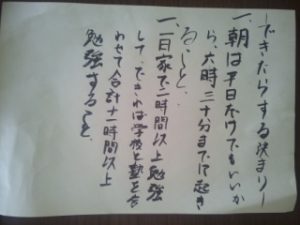 できたらする決まり
一、朝は平日だけでもいいか
ら、六時三十分までに起き
ること。
一、一日家で二時間以上勉強
して、できれば学校と塾を合
わせて合計十一時間以上
勉強すること。